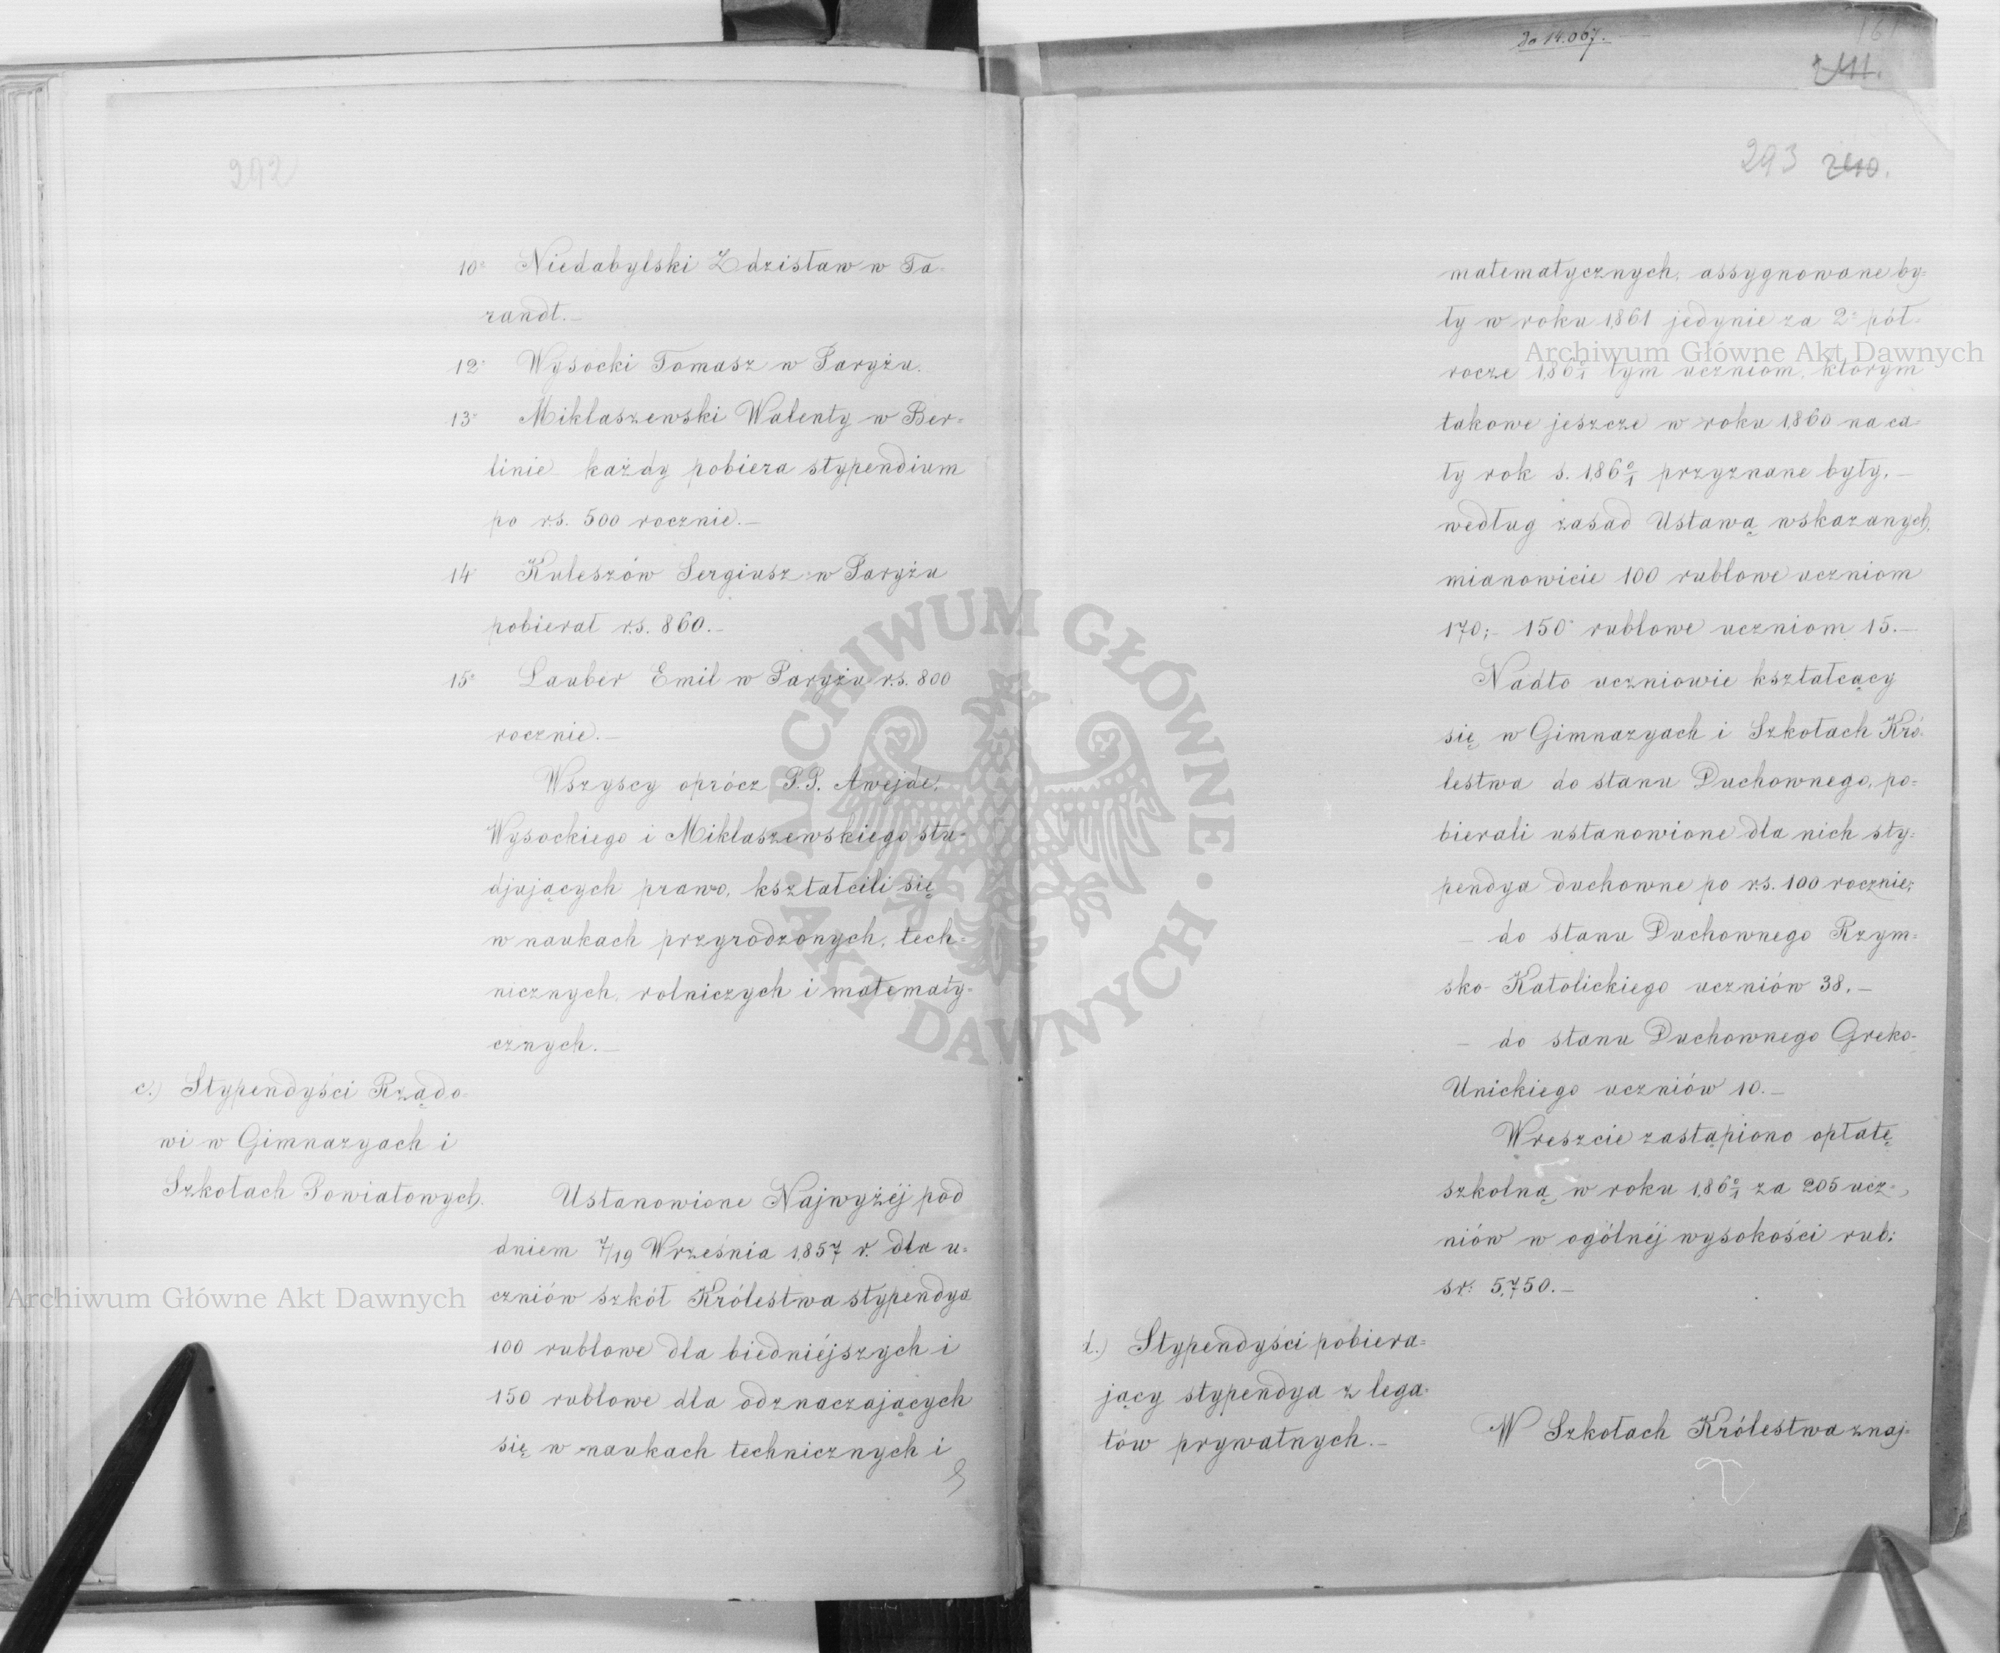 292
10° Niedabylski Zdzisław w Ta-
randt.—
12° Wysocki Tomasz w Paryżu.
13° Miklaszewski Walenty w Ber-
linie każdy pobiera stypendium
po rs. 500 rocznie.—
14° Kuleszów Sergiusz w Paryżu
pobierał rs. 860.—
15° Lauber Emil w Paryżu rs. 800
rocznie.—
Wszyscy oprócz P.P. Awejde,
Wysockiego i Miklaszewskiego stu-
djujących prawo, kształcili się
w naukach przyrodzonych, tech-
nicznych, rolniczych i matematy-
cznych.—
c.) Stypendyści Rządo-
wi w Gimnazyach i
Szkołach Powiatowych.
Ustanowione Najwyżéj pod
dniem 7/19 Września 1857 r. dla u-
czniów szkół Królestwa stypendya
100 rublowe dla biedniéjszych i
150 rublowe dla odznaczających
się w naukach technicznych i
do 14.067.
161
293
matematycznych, assygnowane by-
ły w roku 1861 jedynie za 2° pół-
rocze 186 0/1 tym uczniom, którym
takowe jeszcze w roku 1860 na ca-
ły rok s. 186 0/1 przyznane były,—
według zasad Ustawą wskazanych,
mianowicie 100 rublowe uczniom
170;— 150 rublowe uczniom 15.—
Nadto uczniowie kształcący
się w Gimnazyach i Szkołach Kró-
lestwa do stanu Duchownego, po-
bierali ustanowione dla nich sty-
pendya duchowne po rs. 100 rocznie;
— do stanu Duchownego Rzym-
sko-Katolickiego uczniów 38.—
— do stanu Duchownego Greko-
Unickiego uczniów 10.—
Wreszcie zastąpiono opłatę
szkolną w roku 186 0/1 za 205 ucz-
niów w ogólnéj wysokości rub:
sr: 5,750.—
d.) Stypendyści pobiera-
jący stypendya z lega-
tów prywatnych.—
W Szkołach Królestwa znaj-
Archiwum Główne Akt Dawnych
Archiwum Główne Akt Dawnych
ARCHIWUM GŁÓWNE · AKT DAWNYCH ·